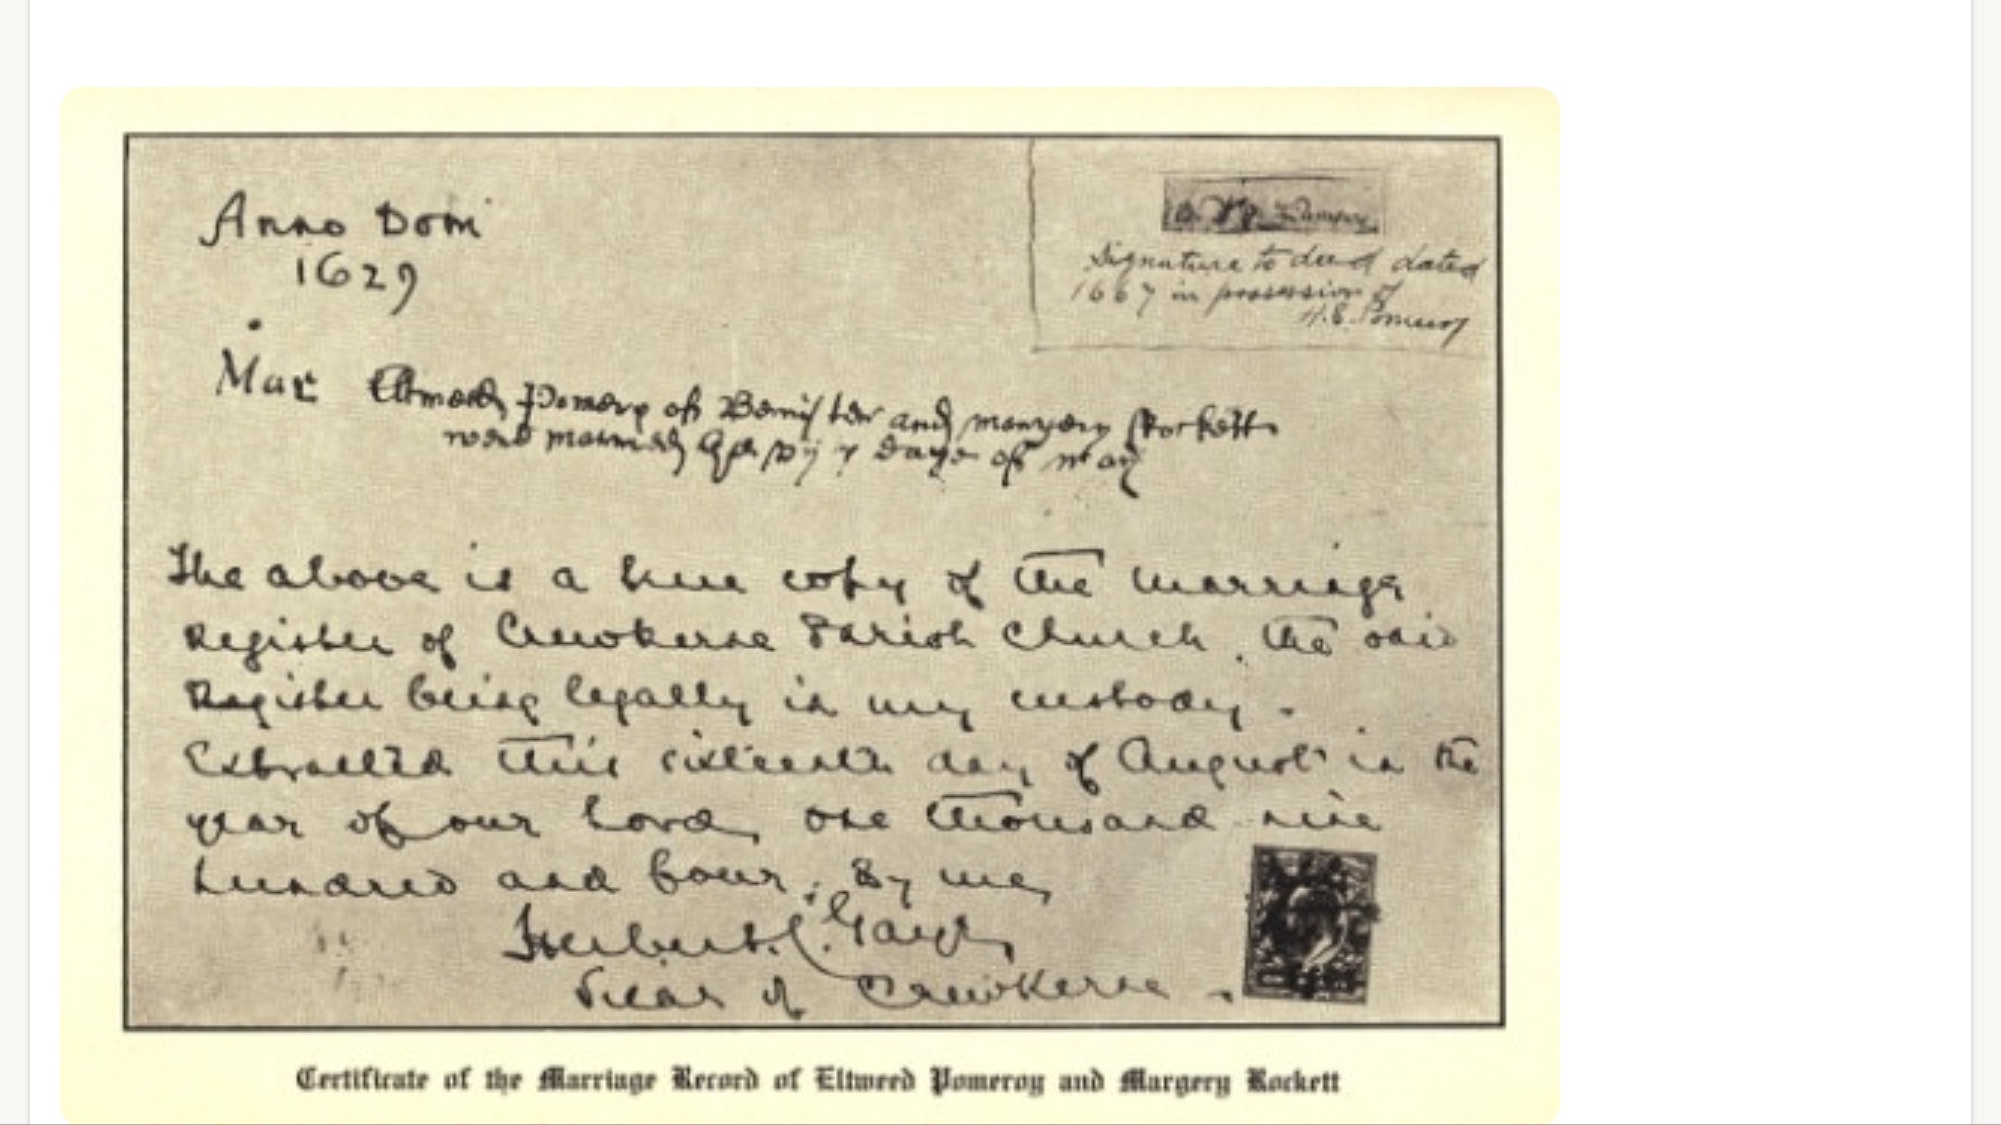 Anno Dom
1629
Signature to deed dated
1667 in possession of
H.E. Pomeroy
Mar Eltweed Pomery of Bemister and margery Rockett
were married the vij daye of may
The above is a true copy of the marriage
Register of Crewkerne Parish Church, the said
Register being legally in my custody.
Extracted this sixteenth day of August in the
year of our Lord, one thousand nine
hundred and four, By me,
Herbert C. Gaye,
Vicar of Crewkerne.
Certificate of the Marriage Record of Eltweed Pomeroy and Margery Rockett